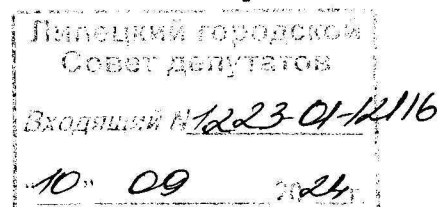 Липецкий городской
Совет депутатов
Входящий № 1223-01-12116
"10" 09 2024 г.